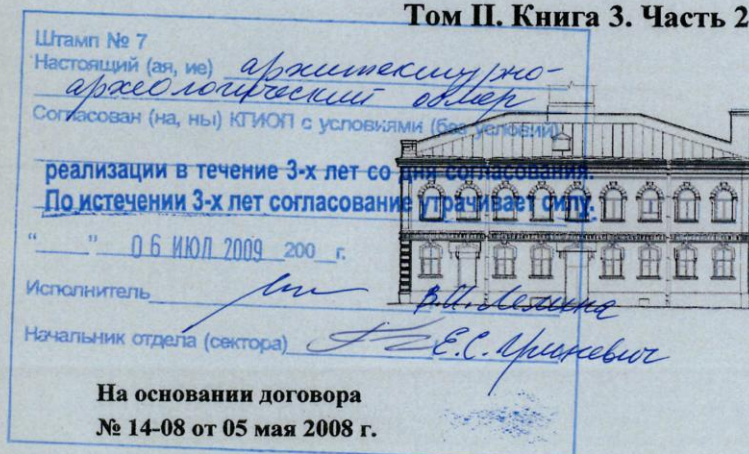 Том II. Книга 3. Часть 2
Штамп № 7
Настоящий (ая, ие) архитектурно-
археологический обмер
Согласован (на, ны) КГИОП с условиями (без условий)
реализации в течение 3-х лет со дня согласования.
По истечении 3-х лет согласование утрачивает силу.
“ ” 06 ИЮЛ 2009 200 г.
Исполнитель
Начальник отдела (сектора) Е.С.
На основании договора
№ 14-08 от 05 мая 2008 г.